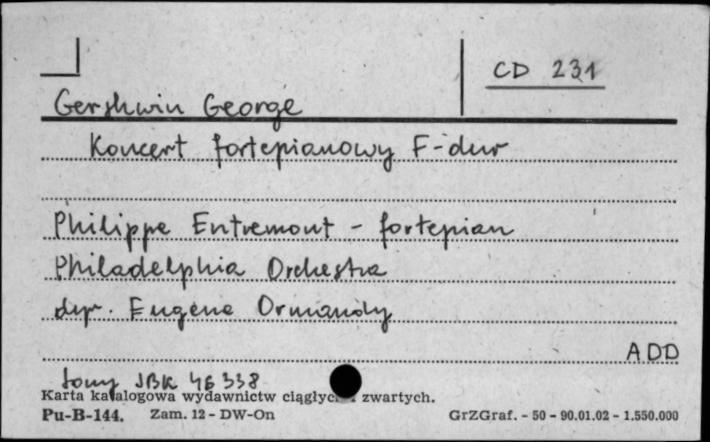 CD 231
Gershwin George
Koncert fortepianowy F-dur
Philippe Entremont - fortepian
Philadelphia Orchestra
dyr. Eugene Ormandy
ADD
Sony SBK 46338
Karta katalogowa wydawnictw ciągłych zwartych.
Pu-B-144. Zam. 12 - DW-On GrZGraf. - 50 - 90.01.02 - 1.550.000